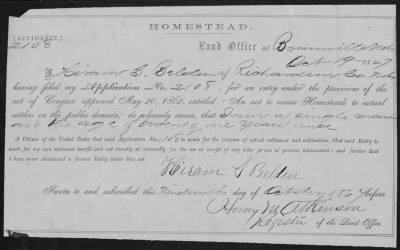 HOMESTEAD.
[AFFIDAVIT]
2108
Land Office at Brownville Neb
Oct 19 1867
I, Hiram S. Belden of Richardson Co. Neb
having filed my Application No. 2108, for an entry under the provisions of the
act of Congress approved May 20, 1862, entitled "An act to secure Homesteads to actual
settlers on the public domain," do solemnly swear, that I am a single man
over the age of twenty one years and
A Citizen of the United States that said Application No. 2108 is made for the purpose of actual settlement and cultivation, that said Entry is
made for my own exclusive benefit and not directly or indirectly for the use or benefit of any other person or persons whomsoever and further that
I have never abandoned a former Entry under this act.
Hiram S Belden
Sworn to and subscribed this Nineteenth day of October 1867 before
Henry M Atkinson
Register of the Land Office.